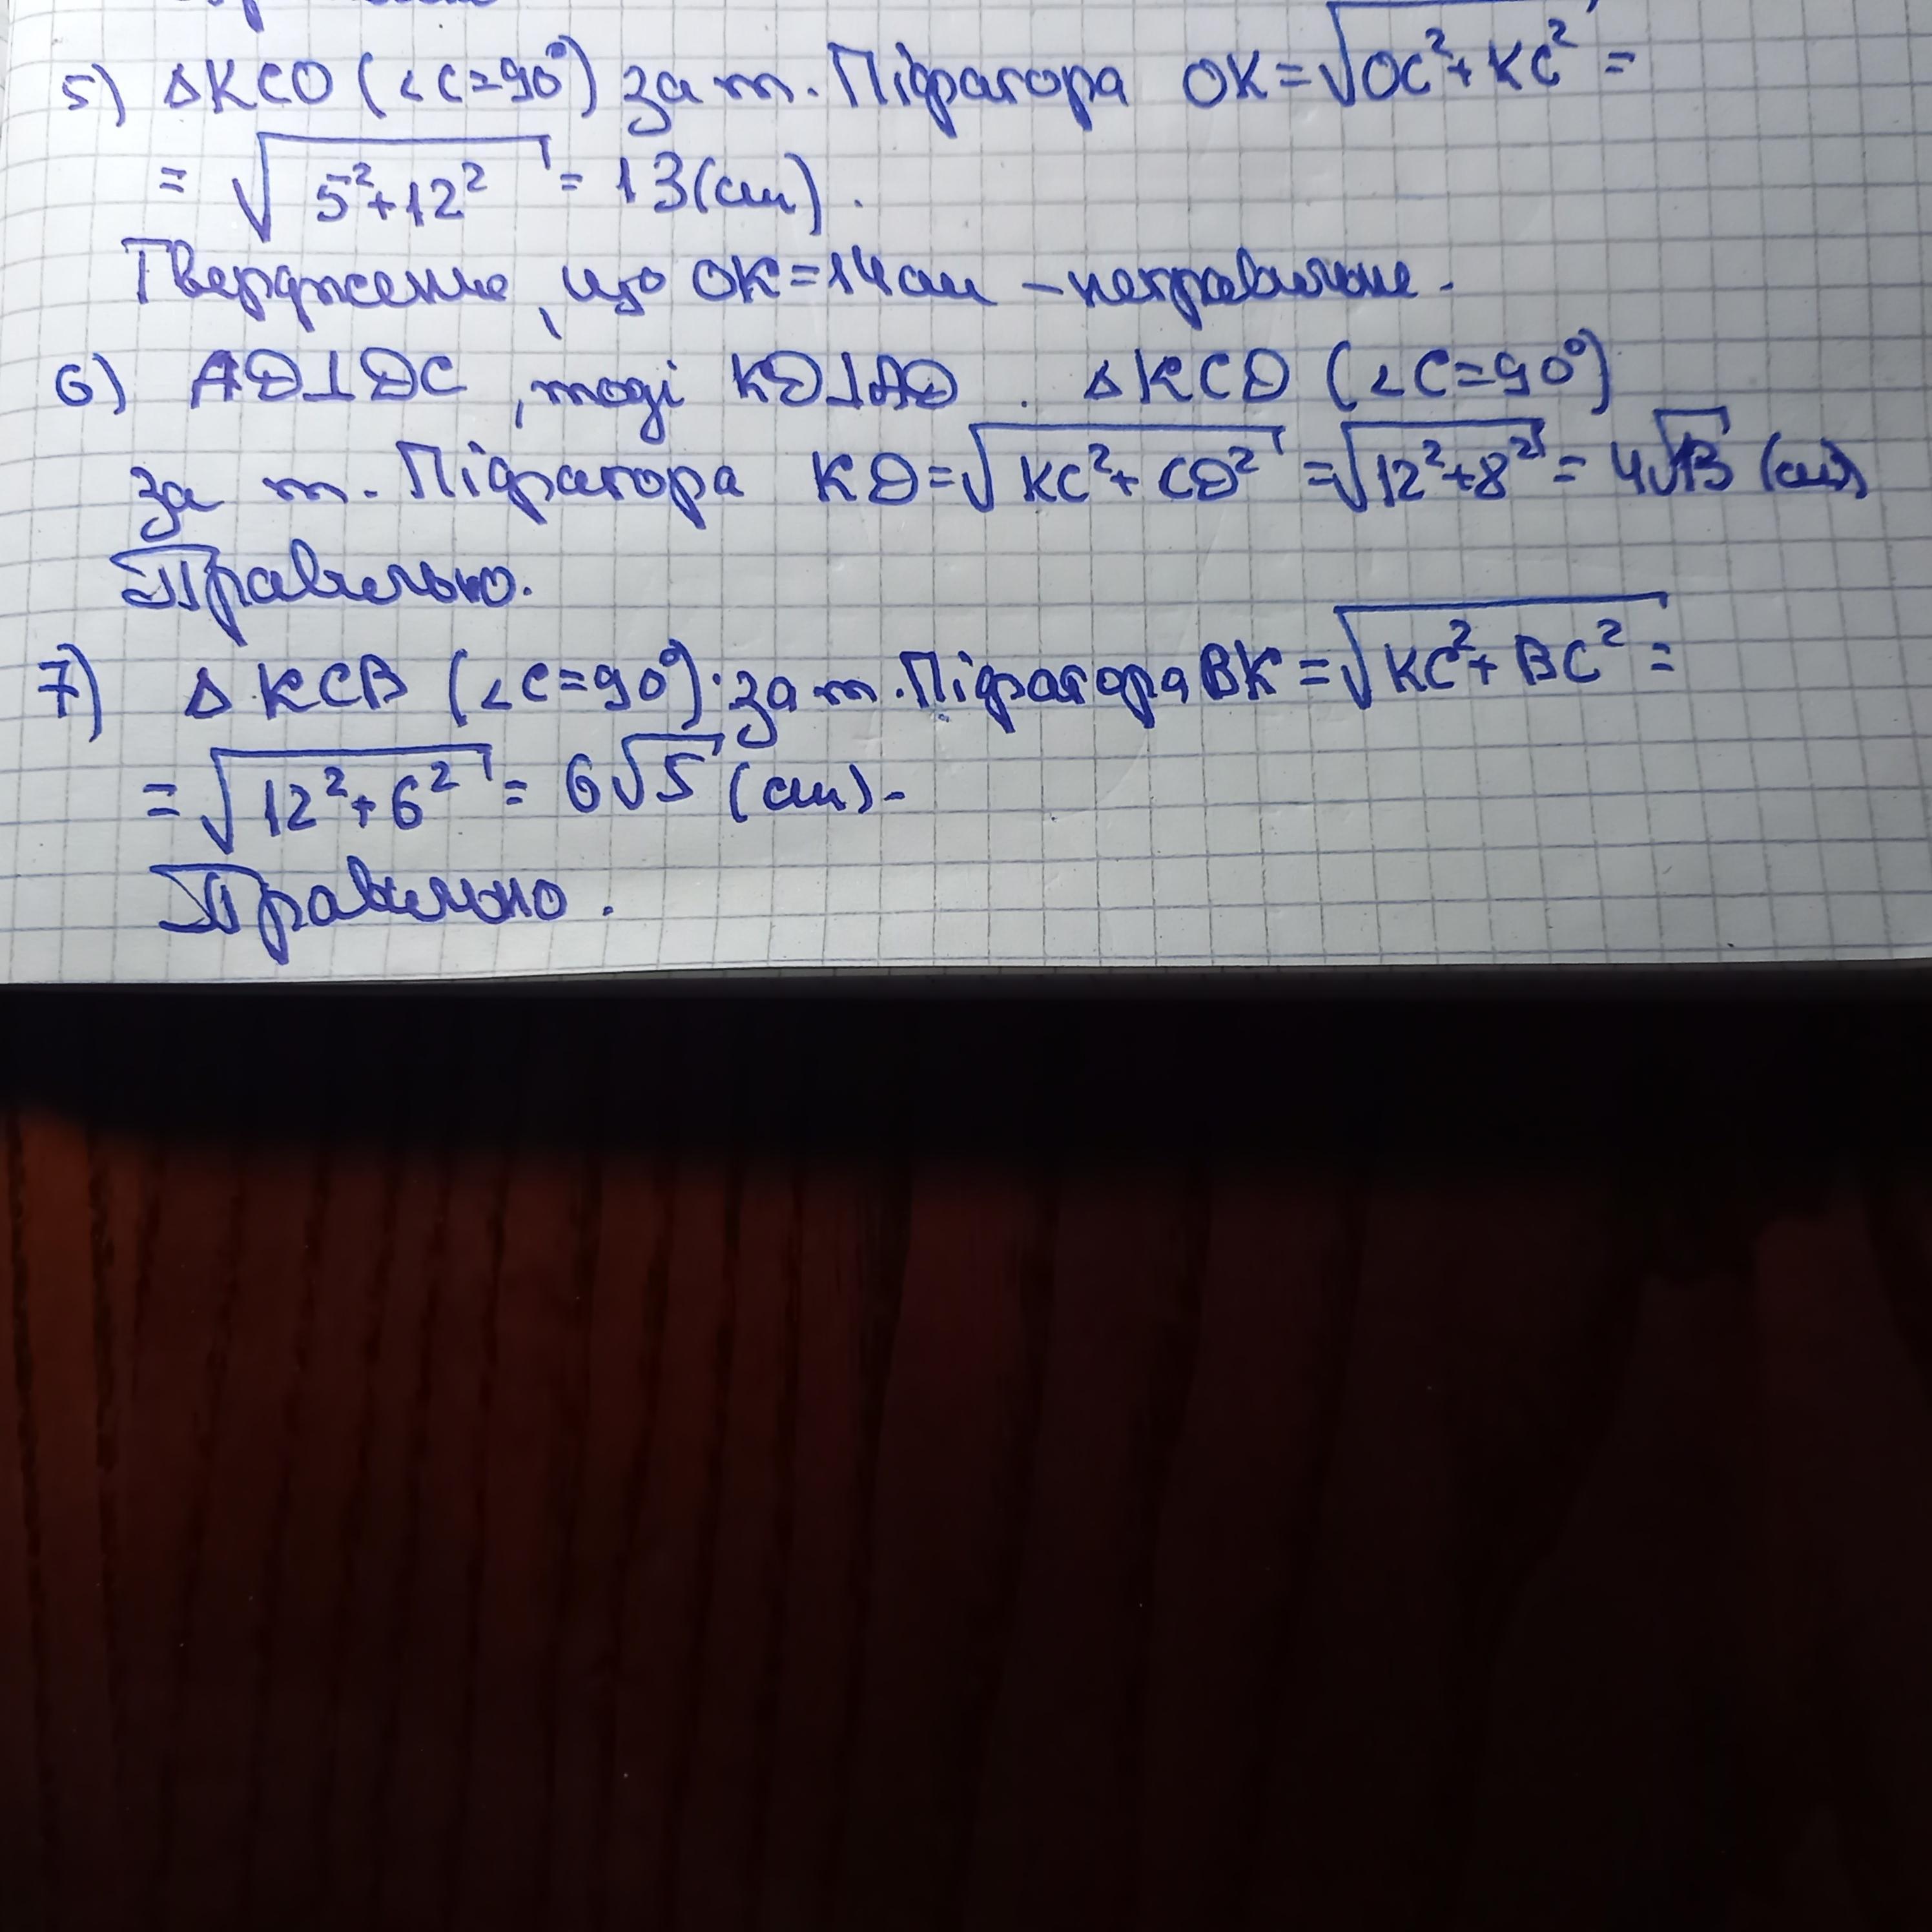 5) △KCO (∠C=90°) за т. Піфагора OK=√(OC²+KC²) =
= √(5²+12²) = 13(см).
Твердження, що OK=14см – неправильне.
6) AD⊥DC, тоді KD⊥AD. △KCD (∠C=90°)
за т. Піфагора KD=√(KC²+CD²) =√(12²+8²) = 4√13 (см)
Правильно.
7) △KCB (∠C=90°). за т. Піфагора BK =√(KC²+BC²) =
=√(12²+6²) = 6√5 (см).
Правильно.